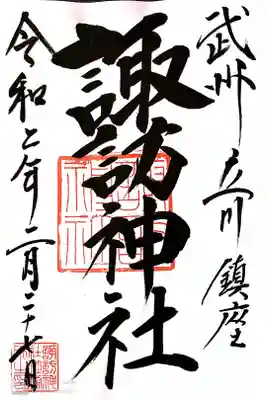 武州立川鎮座
諏訪神社
令和二年二月二十七日